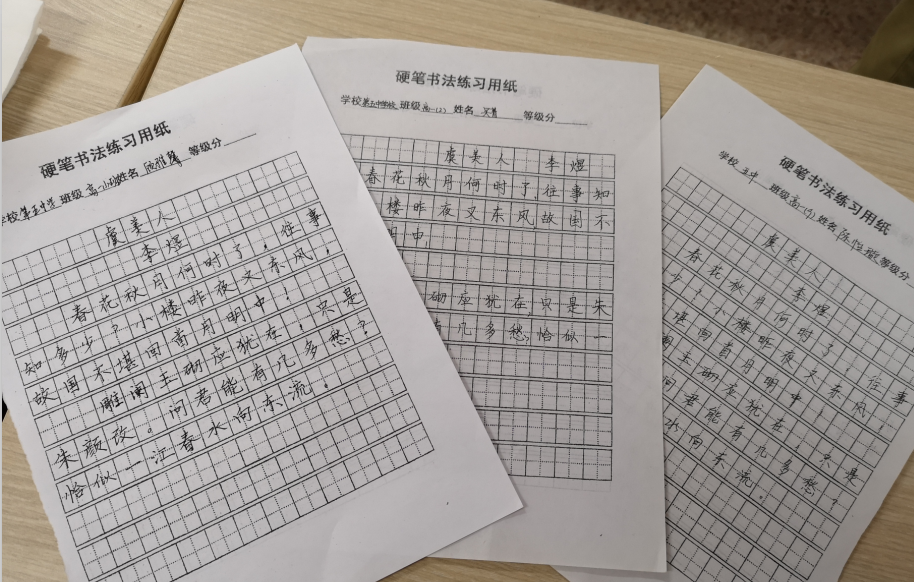 硬笔书法练习用纸
学校第五中学 班级高一 姓名 等级分
虞美人
李煜
春花秋月何时了，往事
知多少？小楼昨夜又东风，
故国不堪回首月明中！
雕阑玉砌应犹在，只是
朱颜改。问君能有几多愁？
恰似一江春水向东流。
硬笔书法练习用纸
学校第五中学校 班级高一(2) 姓名 等级分
虞美人 李煜
春花秋月何时了，往事知
楼昨夜又东风，故国不
月明中，
砌应犹在，只是朱
有几多愁，恰似一
硬笔书法练习用纸
学校 五中 班级高一 姓名陈 等级分
虞美人
李煜
春花秋月何时了，往事
少？小楼昨夜又东风，
堪回首月明中！
阑玉砌应犹在，只是
问君能有几多愁？
水向东流。